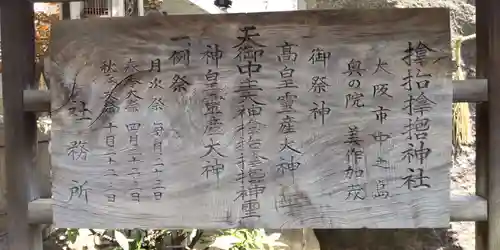 神社
大阪市中之島
奥の院 美作加茂
御祭神
高皇霊産大神
天御中主大神 神霊
神皇霊産大神
一、例祭
月次祭 毎月二十三日
春季大祭 四月二十二、三日
秋季大祭 十月二十二、三日
社務所